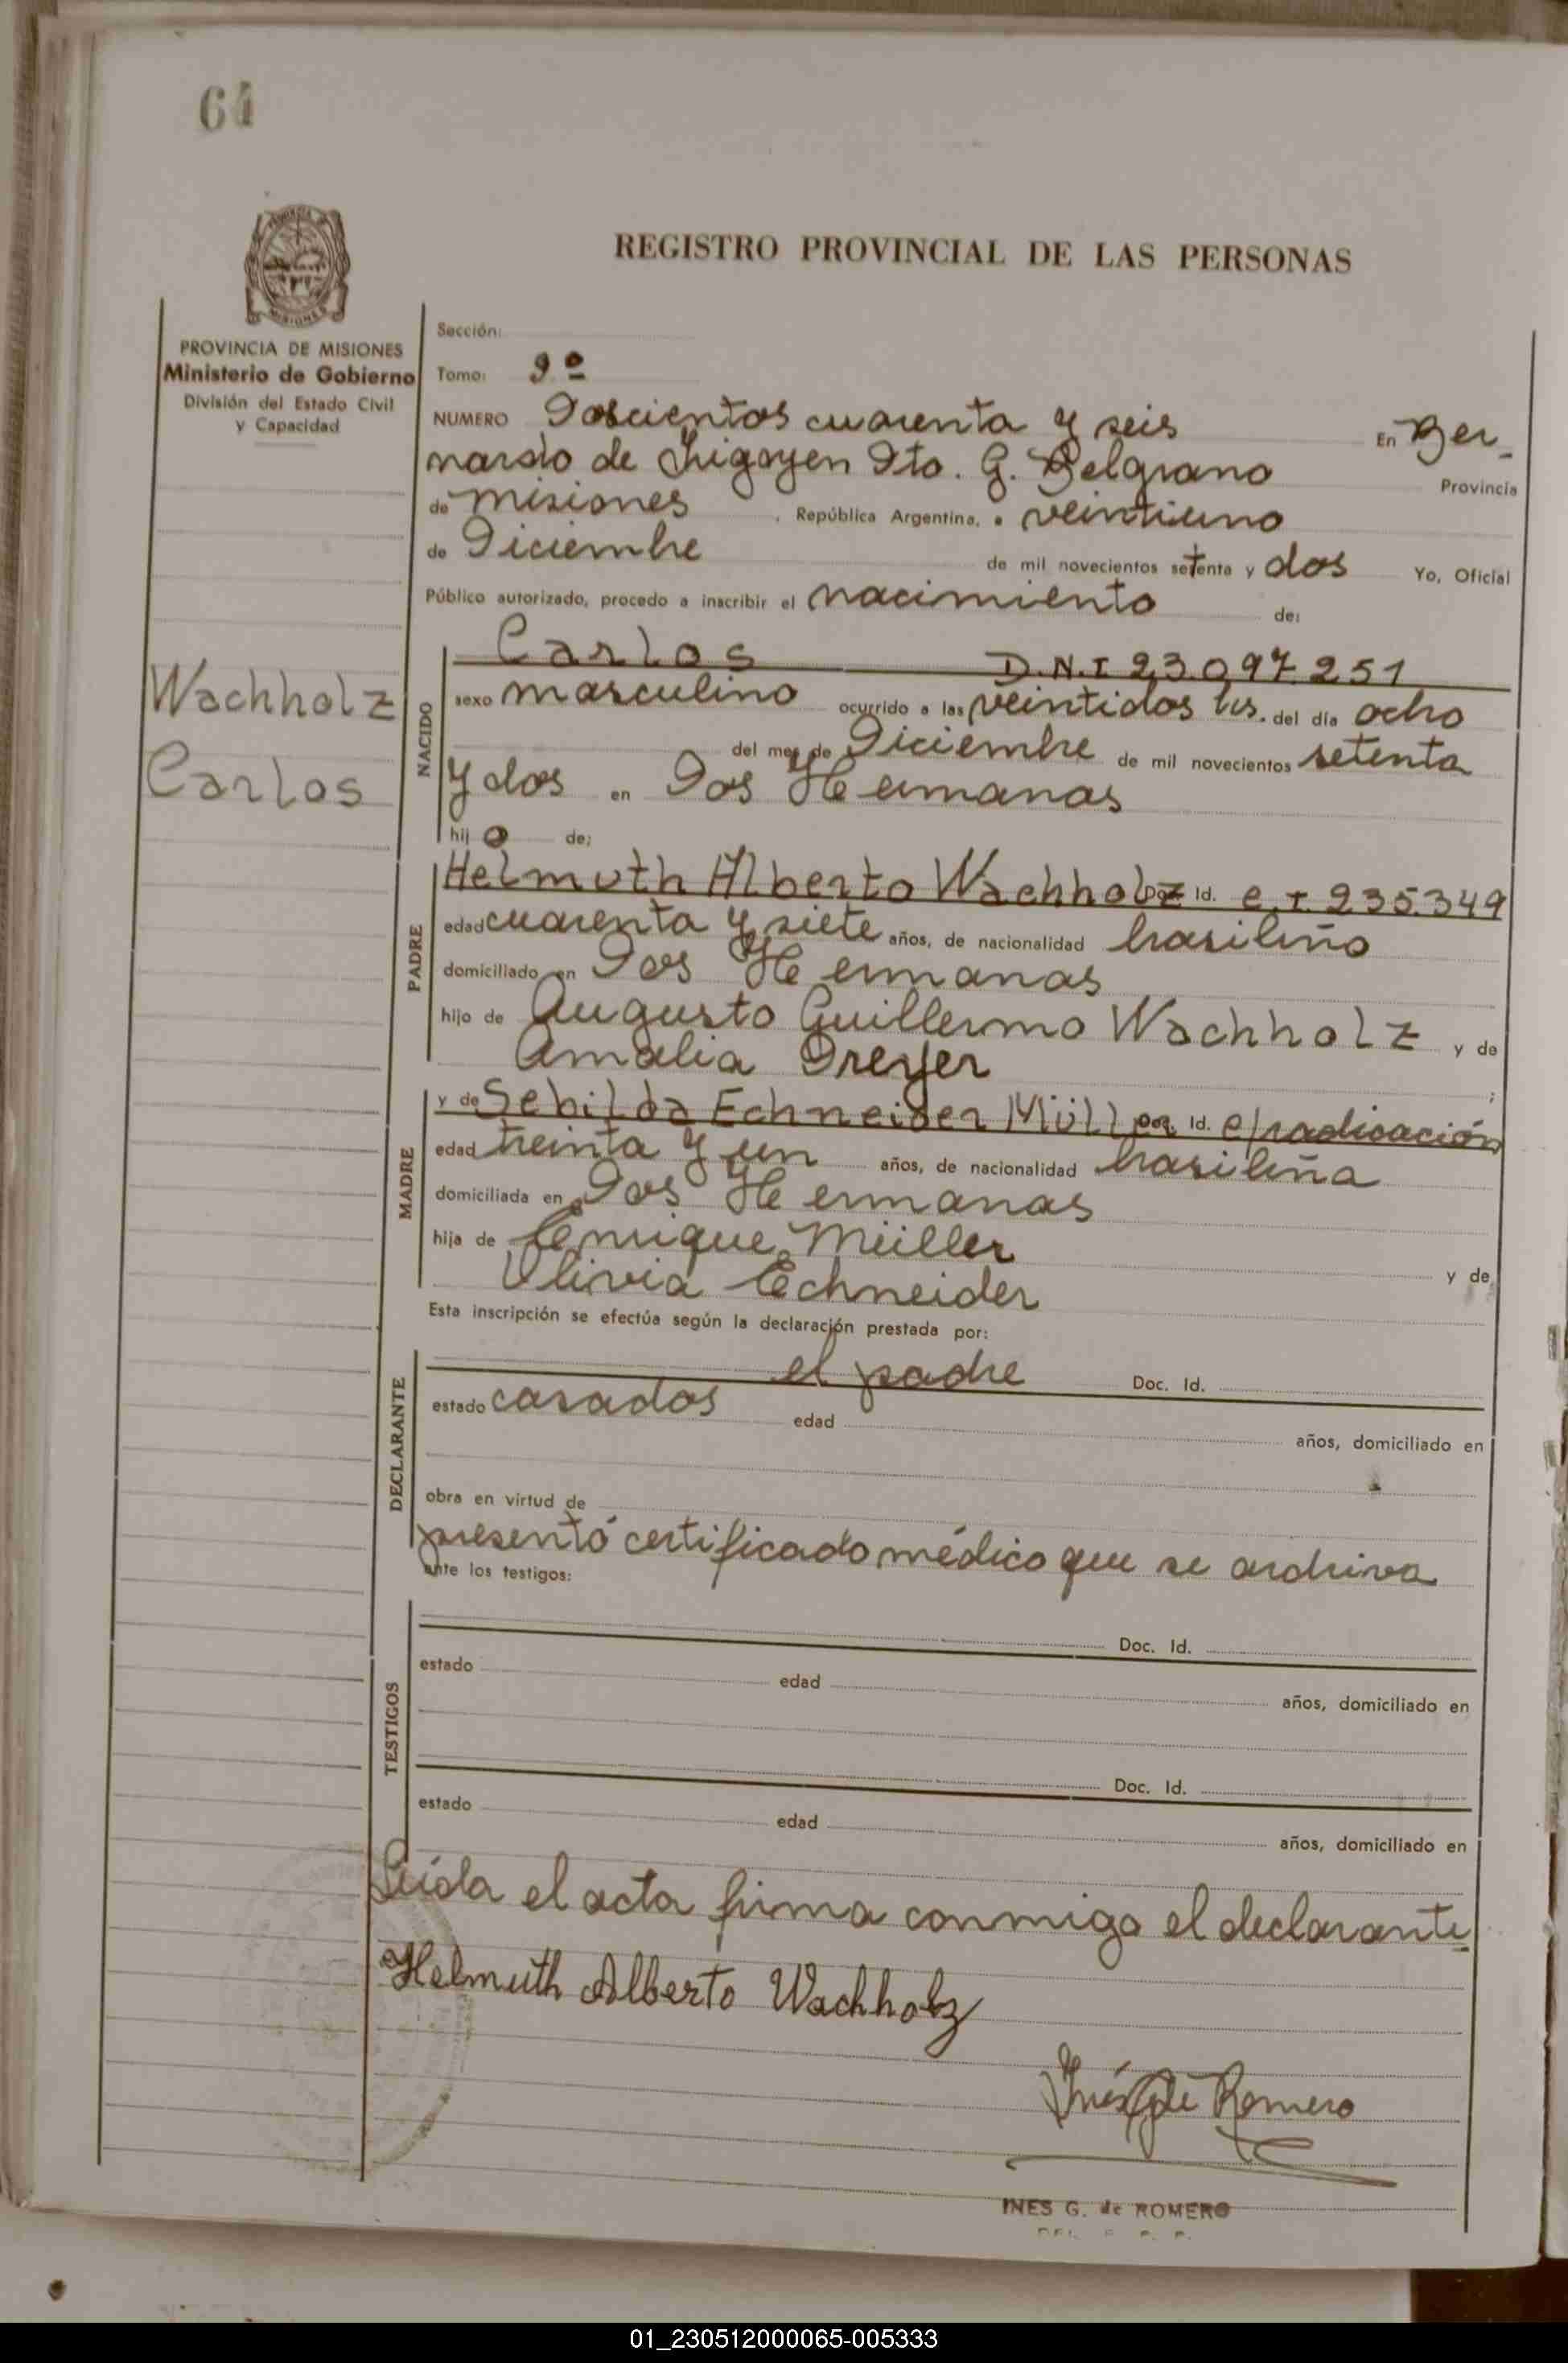 64
REGISTRO PROVINCIAL DE LAS PERSONAS
MISIONES
PROVINCIA DE MISIONES
Ministerio de Gobierno
División del Estado Civil
y Capacidad
Sección:
Tomo: 9º
NUMERO Doscientos cuarenta y seis En Ber-
nardo de Irigoyen Dto. G. Belgrano Provincia
de Misiones, República Argentina, a veintiuno
de Diciembre de mil novecientos setenta y dos Yo, Oficial
Público autorizado, procedo a inscribir el nacimiento de:
Wachholz
Carlos
NACIDO
Carlos D.N.I 23.097.251
sexo masculino ocurrido a las veintidos hs. del día ocho
del mes de Diciembre de mil novecientos setenta
y dos en Dos Hermanas
hijo de:
PADRE
Helmuth Alberto Wachholz Doc. Id. C.I. 235.349
edad cuarenta y siete años, de nacionalidad brasileño
domiciliado en Dos Hermanas
hijo de Augusto Guillermo Wachholz y de
Amalia Dreyer ;
MADRE
y de Sebilda Echneider Müller Doc. Id. c/radicación
edad treinta y un años, de nacionalidad brasileña
domiciliada en Dos Hermanas
hija de Enrique Müller y de
Olivia Echneider
Esta inscripción se efectúa según la declaración prestada por:
DECLARANTE
el padre Doc. Id.
estado casados edad años, domiciliado en
obra en virtud de
presentó certificado médico que se archiva
ante los testigos:
TESTIGOS
Doc. Id.
estado edad años, domiciliado en
Doc. Id.
estado edad años, domiciliado en
Leída el acta firma conmigo el declarante
Helmuth Alberto Wachholz
Inés G de Romero
INES G. de ROMERO
01_230512000065-005333